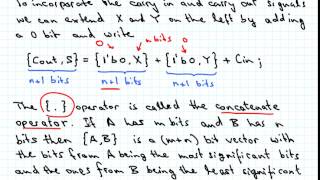 To incorporate the carry in and carry out signals
we can extend X and Y on the left by adding
a 0 bit and write
0 n bits 0
{Cout, S} = {1'b0, X} + {1'b0, Y} + Cin ;
n+1 bits n+1 bits n+1 bits
The {.} operator is called the concatenate
operator. If A has m bits and B has n
bits then {A,B} is a (m+n) bit vector with
the bits from A being the most significant bits
and the ones from B being the least significant